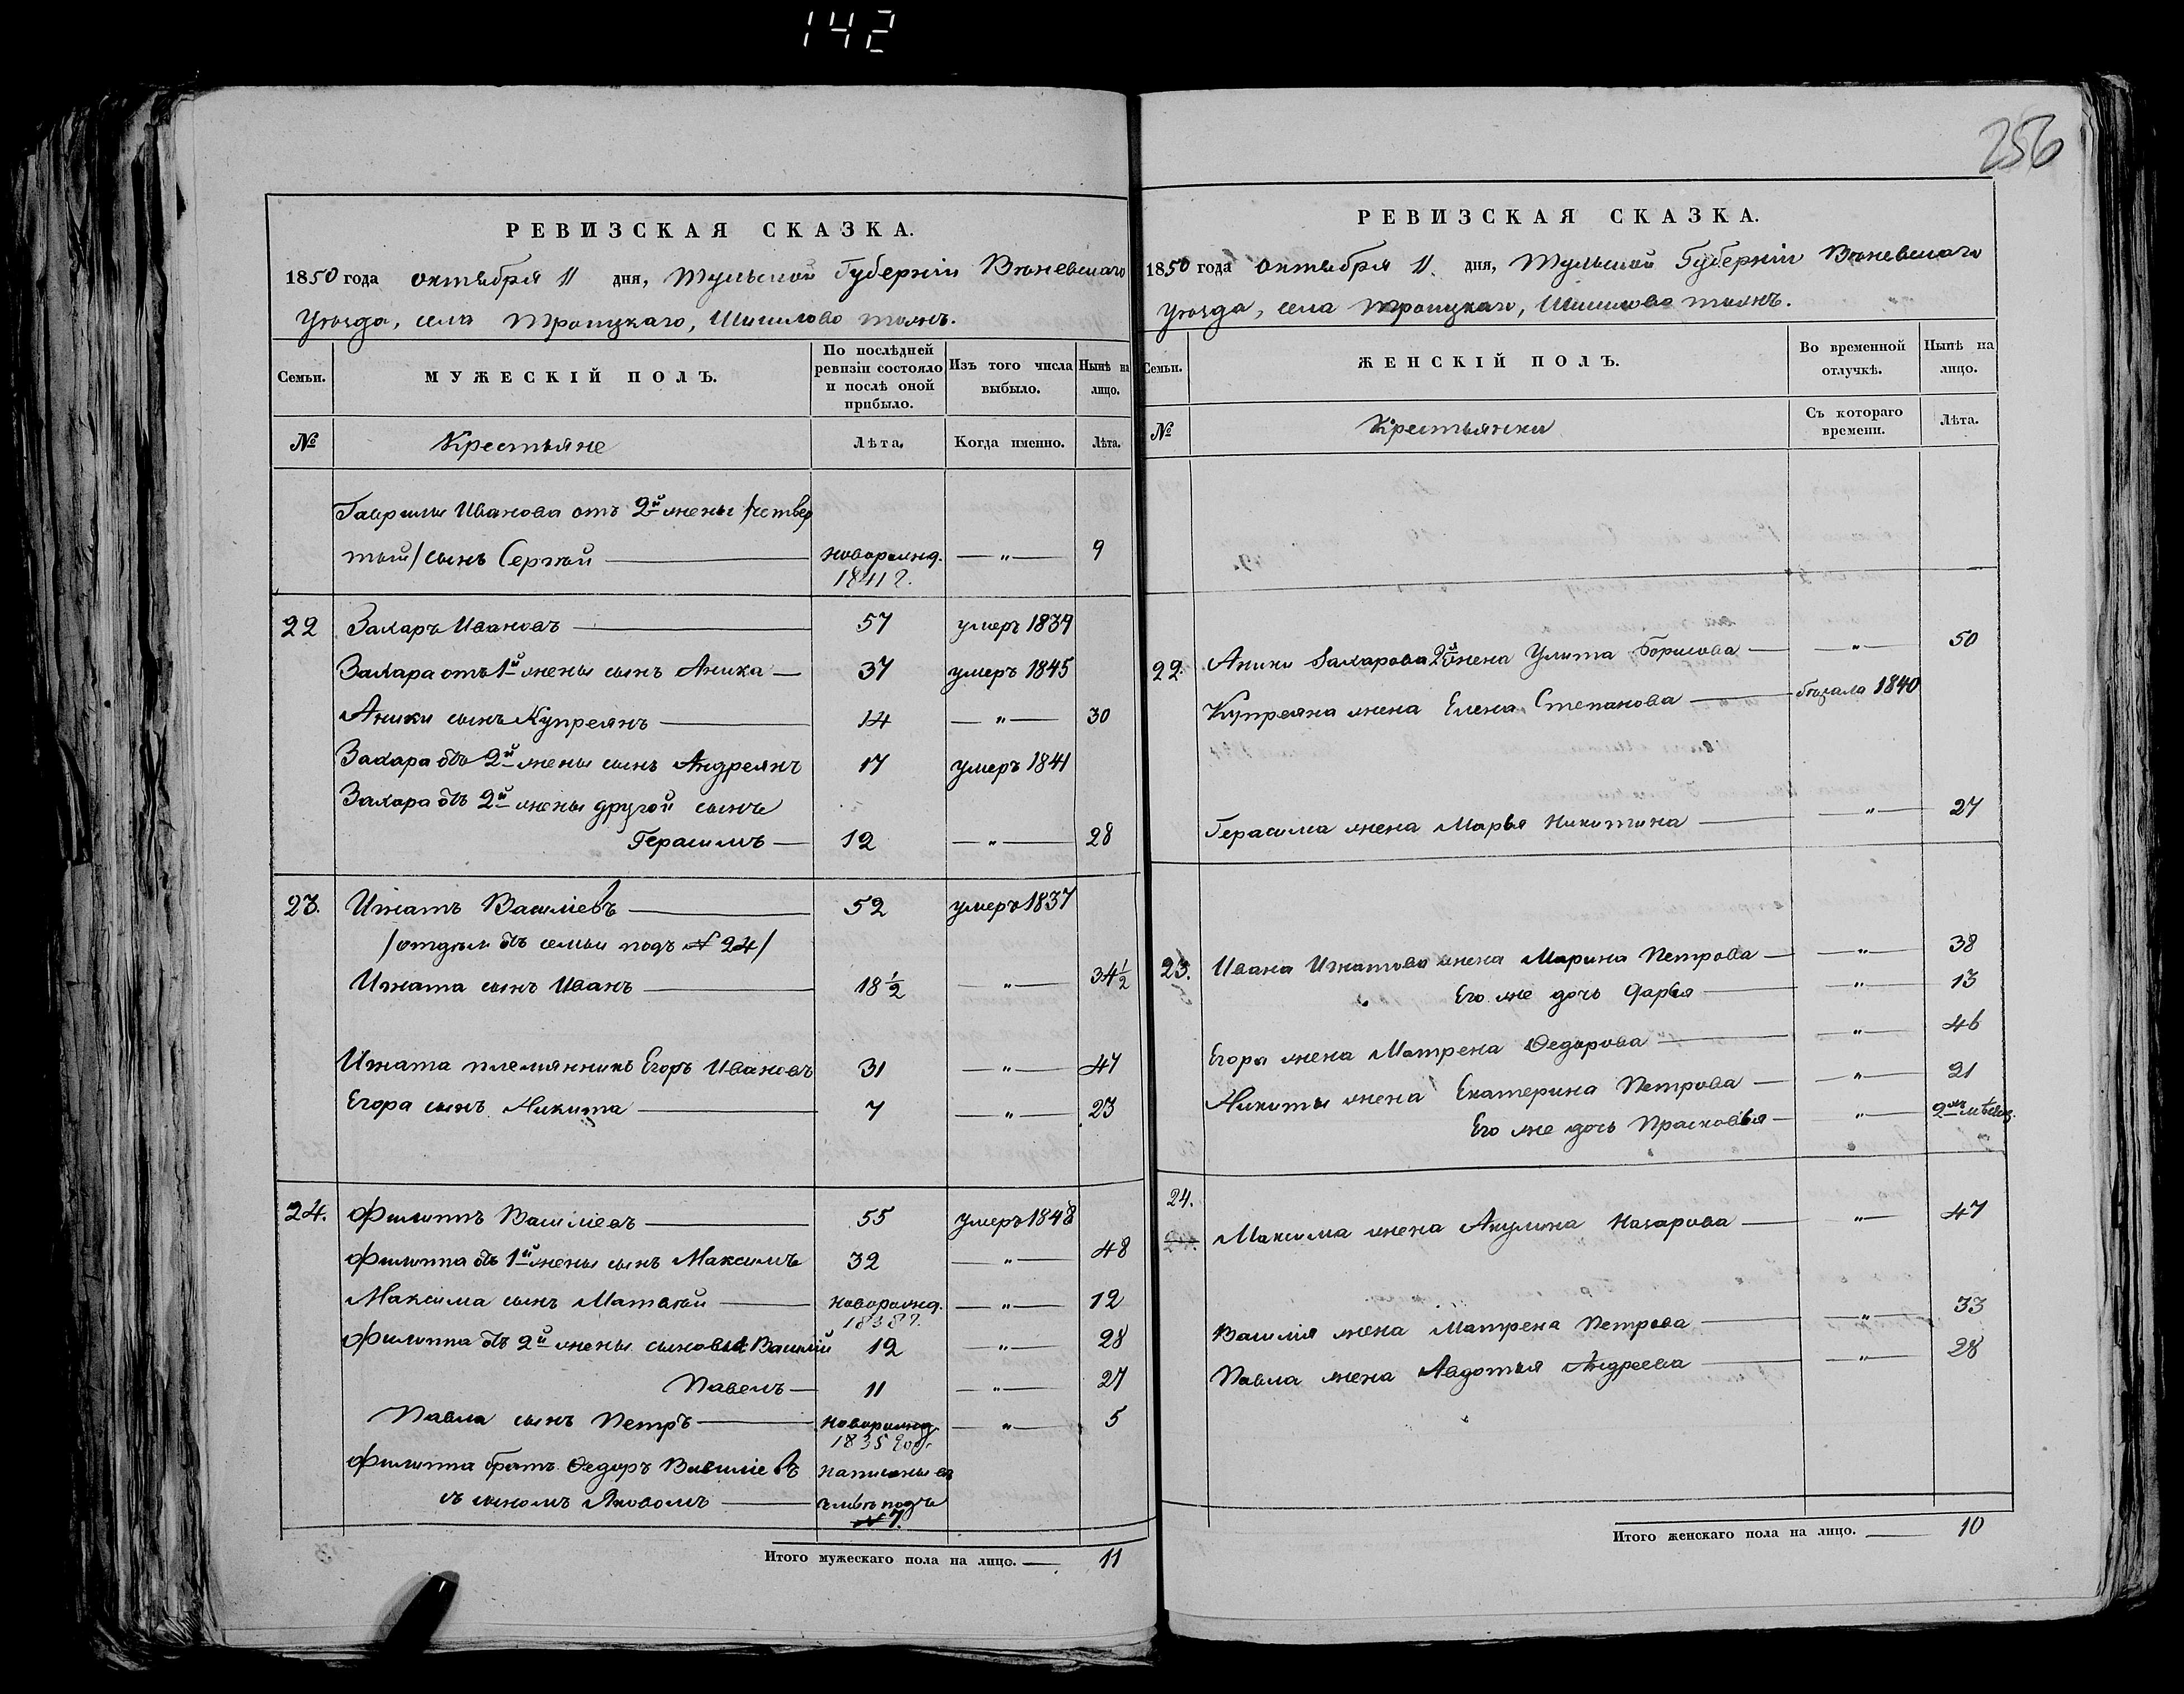 142
256
РЕВИЗСКАЯ СКАЗКА.
1850 года октября 11 дня, Тульской Губерніи Веневскаго
Уѣзда, села Троицкаго, Шишлово тожъ.
Семьи.
МУЖЕСКІЙ ПОЛЪ.
По послѣдней ревизіи состояло и послѣ оной прибыло.
Изъ того числа выбыло.
Нынѣ на лицо.
№
Крестьяне
Лѣта.
Когда именно.
Лѣта.
Гаврилы Иванова отъ 2й жены /четвер
тый/ сынъ Сергѣй — новорожд. — " — 9
1841 г.
22 Захаръ Ивановъ — 57 умеръ 1839
Захара отъ 1й жены сынъ Аника — 37 умеръ 1845
Аники сынъ Купреянъ — 14 — " — 30
Захара отъ 2й жены сынъ Андреянъ 17 умеръ 1841
Захара отъ 2й жены другой сынъ
Герасимъ — 12 — " — 28
23. Игнатъ Василіевъ — 52 умеръ 1837
/отдѣл отъ семьи подъ № 24/
Игната сынъ Иванъ — 18 1/2 — " — 34 1/2
Игната племянникъ Егоръ Ивановъ 31 — " — 47
Егора сынъ Никита — 7 — " — 23
24. Филиппъ Василіевъ — 55 умеръ 1848
Филиппа отъ 1й жены сынъ Максимъ 32 — " — 48
Максима сынъ Матвѣй — новорожд. — " — 12
1838 г.
Филиппа отъ 2й жены сыновья Василій 12 — " — 28
Павелъ — 11 — " — 27
Павла сынъ Петръ — новорожд. — " — 5
1835 год.
Филиппа братъ Ѳедоръ Василіевъ написаны въ
съ сыномъ Яковомъ — подъ
№ 7.
Итого мужескаго пола на лицо. — 11
РЕВИЗСКАЯ СКАЗКА.
1850 года октября 11. дня, Тульской Губерніи Веневскаго
Уѣзда, села Троицкаго, Шишлово тожъ.
Семьи.
ЖЕНСКІЙ ПОЛЪ.
Во временной отлучкѣ.
Нынѣ на лицо.
№
Крестьянки
Съ котораго времени.
Лѣта.
22. Аники Захарова 2я жена Улита Борисова — " — 50
Купреяна жена Елена Степанова — бѣжала 1840
Герасима жена Марья Никитина — " — 27
23. Ивана Игнатова жена Марина Петрова — " — 38
Его же дочь Дарья — " — 13
Егора жена Матрена Ѳедорова — " — 46
Никиты жена Екатерина Петрова — " — 21
Его же дочь Прасковья — " — 2хъ мѣсяц.
24.
Максима жена Акулина Назарова — " — 47
Василія жена Матрена Петрова — " — 33
Павла жена Авдотья Андреева — " — 28
Итого женскаго пола на лицо. — 10